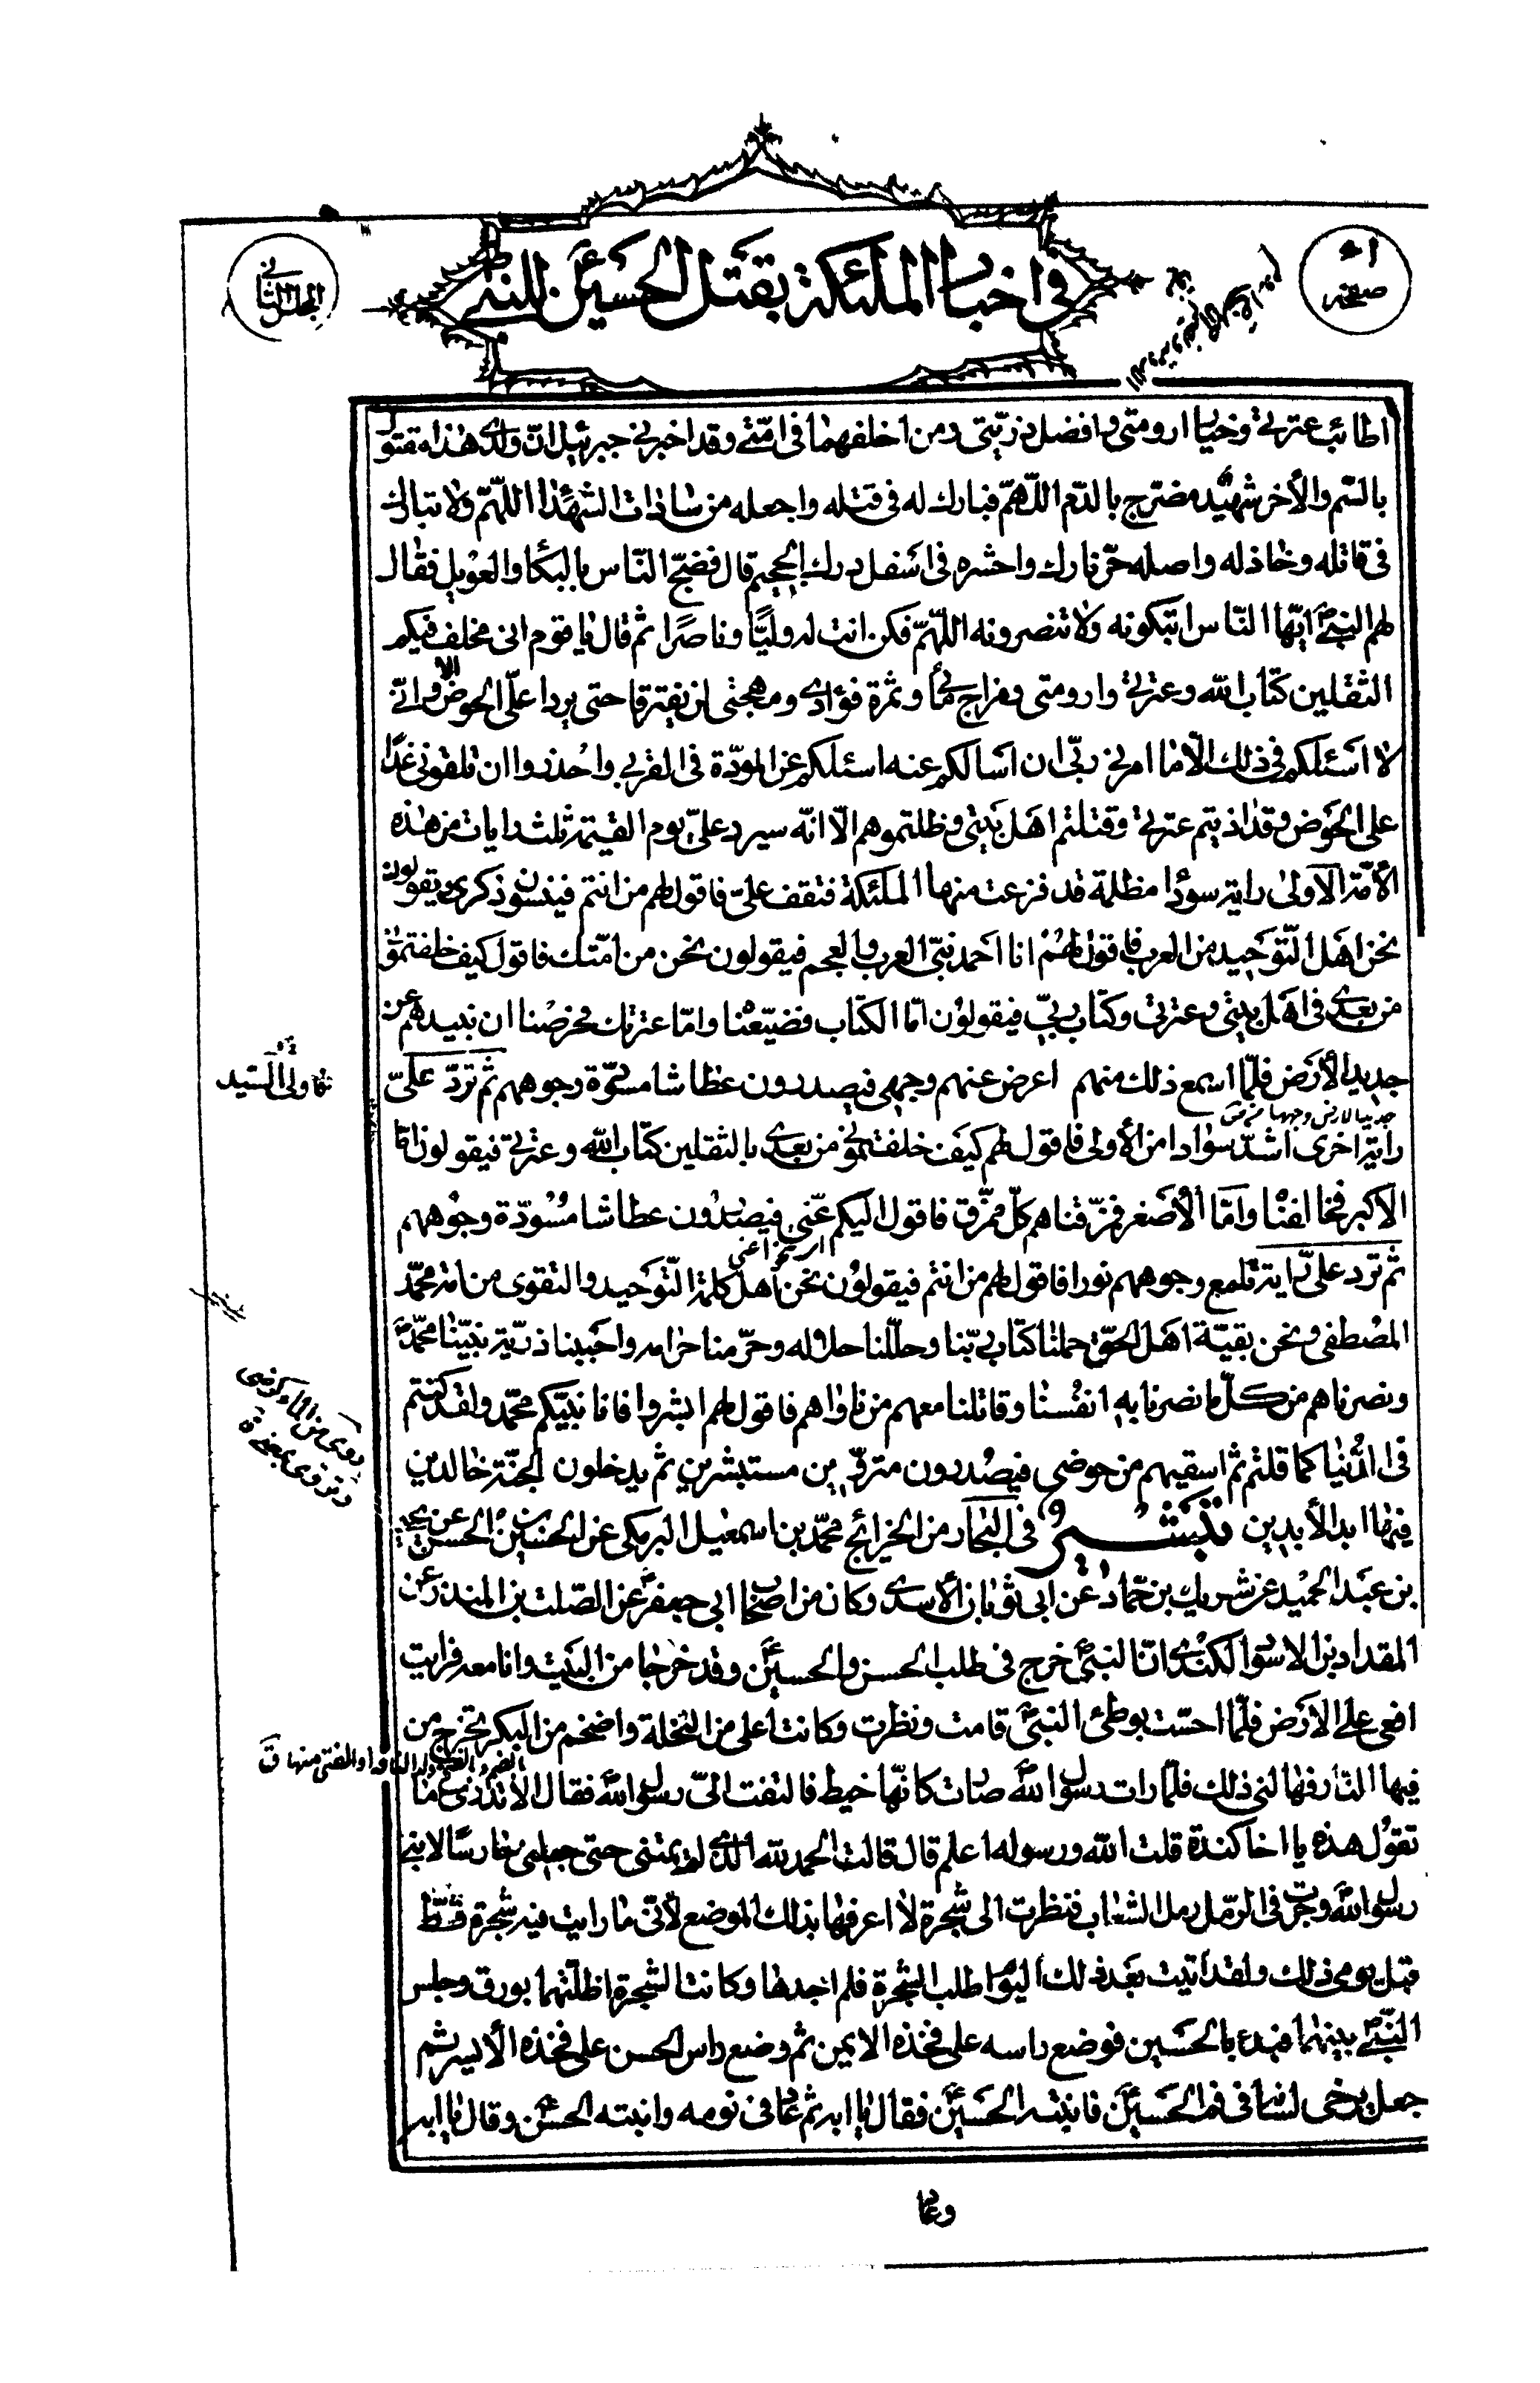 صفحه
في اخبار الملئكة بقتل الحسين للنبي
المجلس الثاني
اطائب عترتي وخيار ارومتي وافضل ذريتي ومن اخلفهما في امّتي وقد اخبرني جبرئيل انّ ولدي هذا مقتول
بالسّم والأخر شهيد مضرّج بالدّم اللّهمّ فبارك له في قتله واجعله من سادات الشهداء اللّهمّ ولا تبارك
في قاتله وخاذله واصله حرّ نارك واحشره في اسفل درك الجحيم قال فضجّ النّاس بالبكاء والعويل فقال
لهم النبيّ ايّها النّاس اتبكونه ولا تنصرونه اللّهمّ فكن انت له وليًّا وناصرًا ثم قال يا قوم اني مخلف فيكم
الثقلين كتاب الله وعترتي وارومتي ومزاج مائي وثمرة فؤادي ومهجتي لن يفترقا حتى يردا عليّ الحوض الا وانّي
لا اسئلكم في ذلك الّا ما امرني ربّي ان اسالكم عنه اسئلكم عن المودّة في القربى واحذروا ان تلقوني غدًا
على الحوض وقد اذيتم عترتي وقتلتم اهل بيتي وظلتموهم الّا انّه سيرد عليّ يوم القيٰمة ثلث رايات من هذه
الأمّة الأولى راية سوداء مظلمة قد فزعت منها الملئكة فتقف عليّ فاقول لهم من انتم فينسون ذكري ويقولون
نحن اهل التّوحيد من العرب فاقول لهم انا احمد نبيّ العرب والعجم فيقولون نحن من امّتك فاقول كيف خلفتموني
من بعدي في اهل بيتي وعترتي وكتاب ربّي فيقولون امّا الكتاب فضيّعنا وامّا عترتك فحرصنا ان نبيدهم عن
جديد الأرض فلمّا اسمع ذلك منهم اعرض عنهم وجهي فيصدرون عطاشا مسودّة وجوههم ثم تردّ عليّ
جديد الارض وجهها
راية اخرى اشدّ سوادا من الأولى فاقول لهم كيف خلفتموني من بعدي بالثقلين كتاب الله وعترتي فيقولون امّا
الأكبر فخالفنا وامّا الأصغر فمزّقناهم كلّ ممزّق فاقول اليكم عنّي فيصدرون عطاشا مسودّة وجوههم
ثم ترد عليّ راية تلمع وجوههم نورا فاقول لهم من انتم فيقولون نحن اهل كلمة التّوحيد والتقوى من امة محمّد
المصطفى ونحن بقيّة اهل الحقّ حملنا كتاب ربّنا وحلّلنا حلاله وحرّمنا حرامه واحببنا ذرّية نبيّنا محمّد
ونصرناهم من كلّ ما نصرنا به انفسنا وقاتلنا معهم من ناواهم فاقول لهم ابشروا فانا نبيّكم محمّد ولقد كنتم
في الدّنيا كما قلتم ثم اسقيهم من حوضي فيصدرون مترويين مستبشرين ثم يدخلون الجنّة خالدين
فيها ابد الأبدين في البحار من الخرائج محمّد بن اسمعيل البرمكي عن الحسين بن الحسن عن يحيى
بن عبد الحميد عن شريك بن حمّاد عن ابي ثوبان الأسدي وكان من اصحاب ابي جعفر عن الصّلت بن المنذر عن
المقداد بن الاسود الكندي انّ النبيّ خرج في طلب الحسن والحسين وقد خرجا من البيت وانا معه فرايت
افعى على الارض فلمّا احسّت بوطئ النبيّ قامت ونظرت وكانت اعلى من النخلة واضخم من البكر تخرج من
فيها النّار فهالني ذلك فلمّا رات رسول الله صارت كانّها خيط فالتفت اليّ رسول الله فقال الا تدري ما
تقول هذه يا اخا كندة قلت الله ورسوله اعلم قال قالت الحمد لله الذي لم يمتني حتى جعلني حارسا لابني
رسول الله وجرت في الرّمل رمل الشعاب فنظرت الى شجرة لا اعرفها بذلك الموضع لأنّي ما رايت فيه شجرة قطّ
قبل يومي ذلك ولقد اتيت بعد ذلك اليوم اطلب الشجرة فلم اجدها وكانت الشجرة اظلّتهما بورق وجلس
النبيّ بينهما فبدء بالحسين فوضع راسه على فخذه الايمن ثم وضع راس الحسن على فخذه الأيسر ثم
جعل يرخي لسانه في فم الحسين فانتبه الحسين فقال يا ابه ثم عاد في نومه وانتبه الحسن وقال يا ابه
وعاد